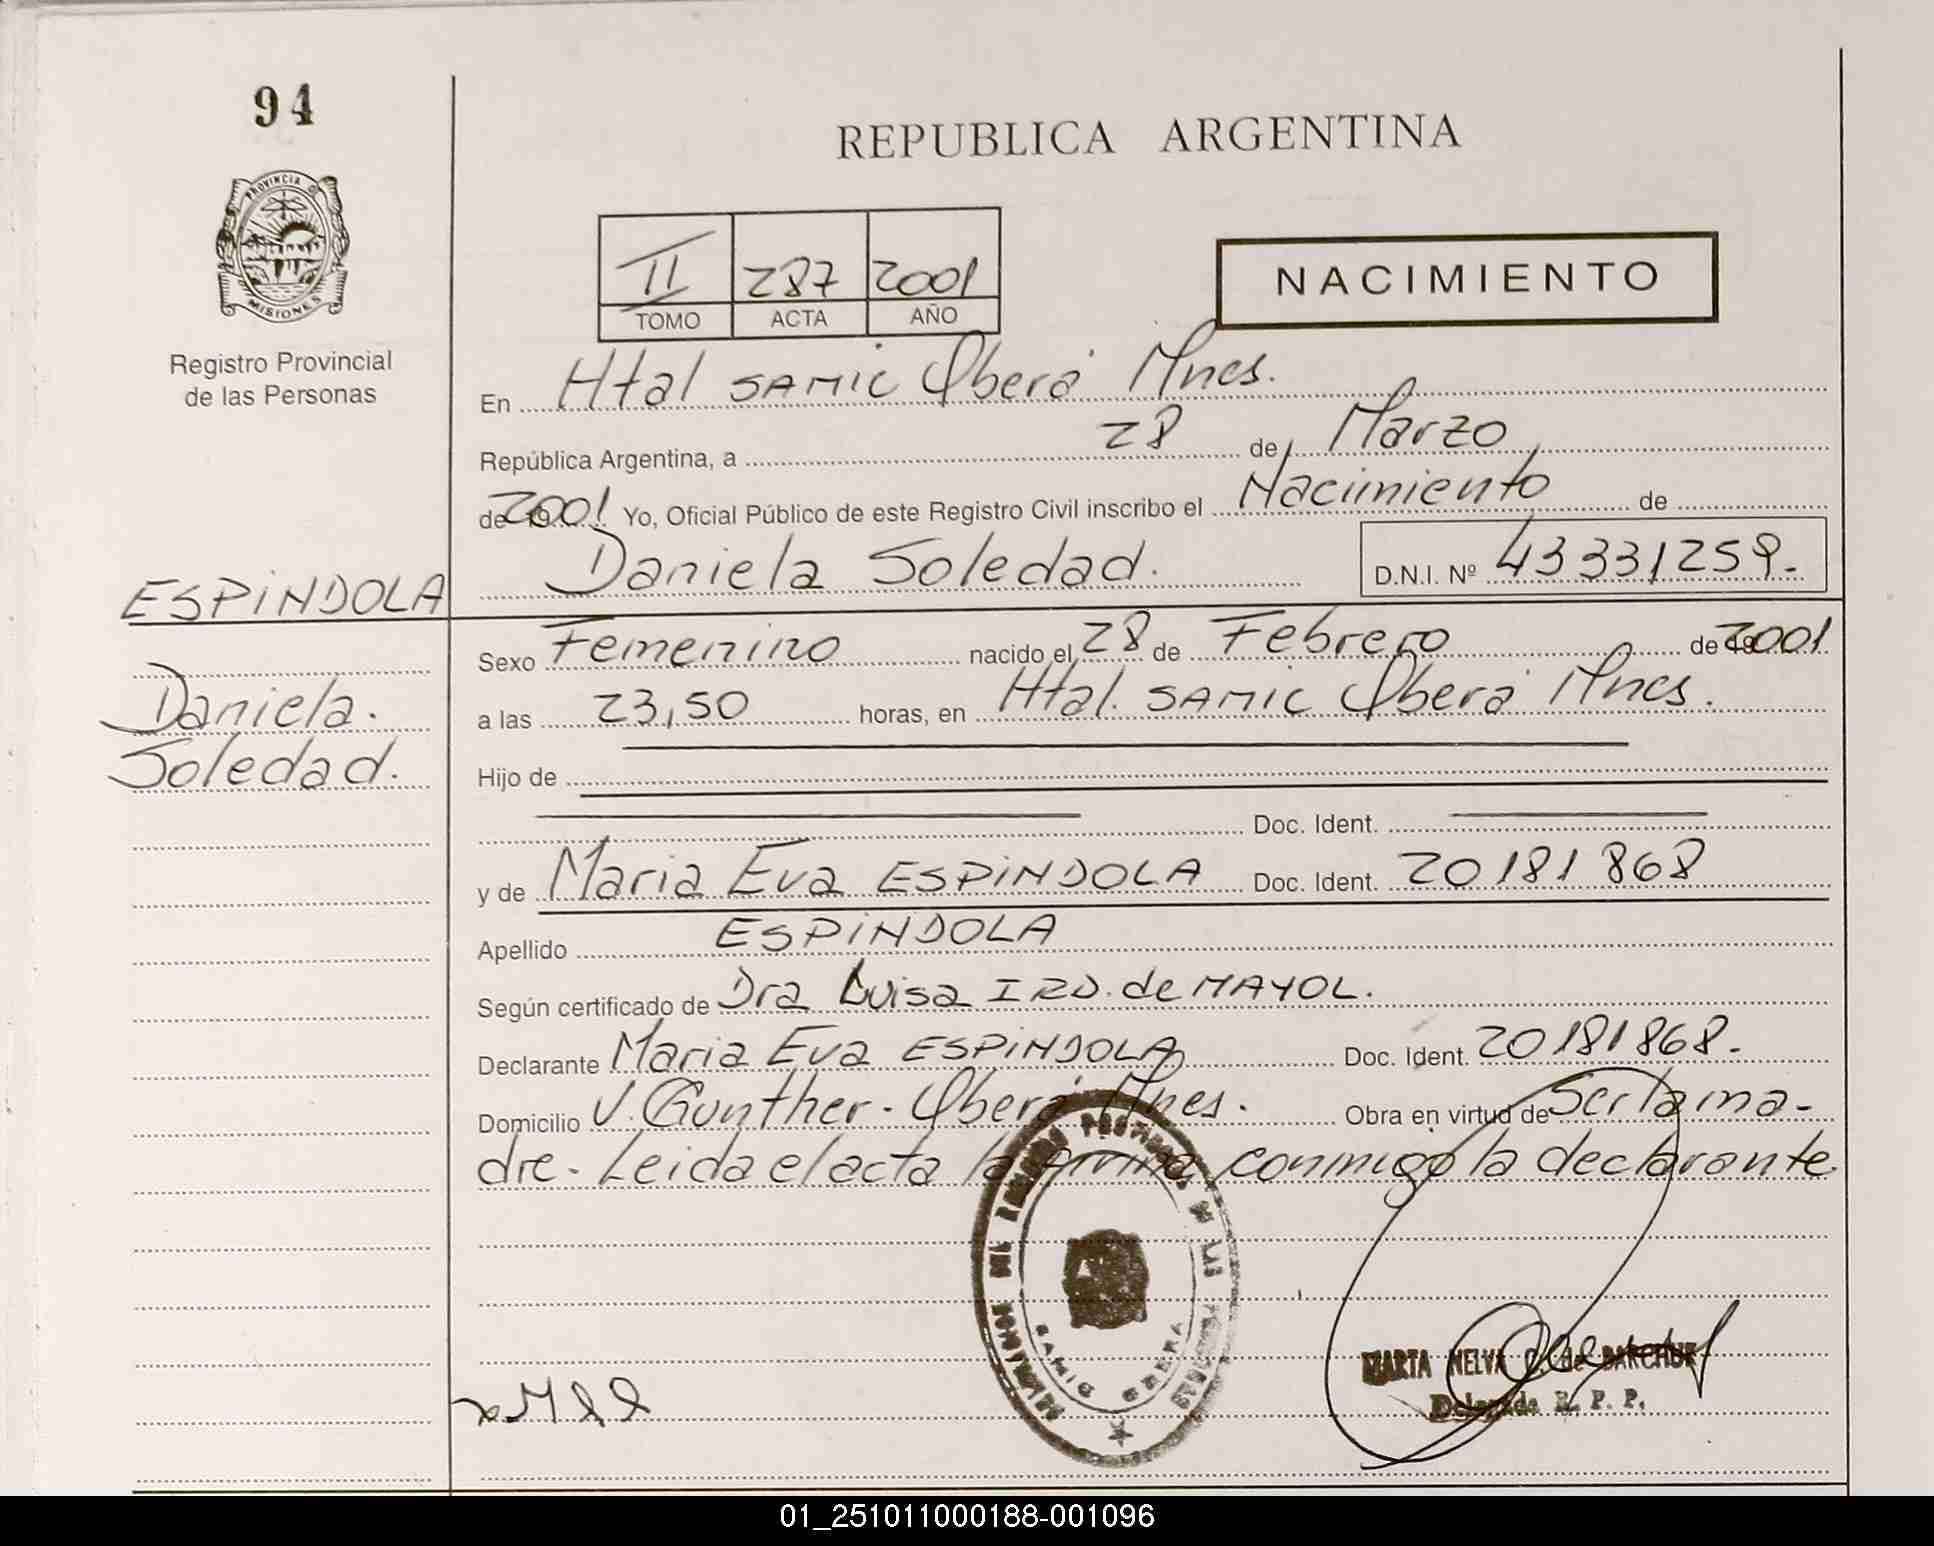 94
PROVINCIA DE
MISIONES
Registro Provincial
de las Personas
ESPINDOLA
Daniela.
Soledad.
REPUBLICA ARGENTINA
II 287 2001
TOMO ACTA AÑO
NACIMIENTO
En Htal SAMIC Oberá Mnes.
República Argentina, a 28 de Marzo
de 2001 Yo, Oficial Público de este Registro Civil inscribo el Nacimiento de
Daniela Soledad. D.N.I. Nº 43331259.-
Sexo Femenino nacido el 28 de Febrero de 2001
a las 23,50 horas, en Htal. SAMIC Oberá Mnes.
Hijo de
Doc. Ident.
y de Maria Eva ESPINDOLA Doc. Ident. 20181868
Apellido ESPINDOLA
Según certificado de Dra Luisa IRD. de MAYOL.
Declarante Maria Eva ESPINDOLA Doc. Ident. 20181868.-
Domicilio V. Gunther - Oberá Mnes. Obra en virtud de Ser la ma-
dre - Leida el acta la firma conmigo la declarante
DEL REGISTRO PROVINCIAL DE LAS PERSONAS
SAMIC OBERA
MARTA NELVA de
Delegada R. P. P.
01_251011000188-001096